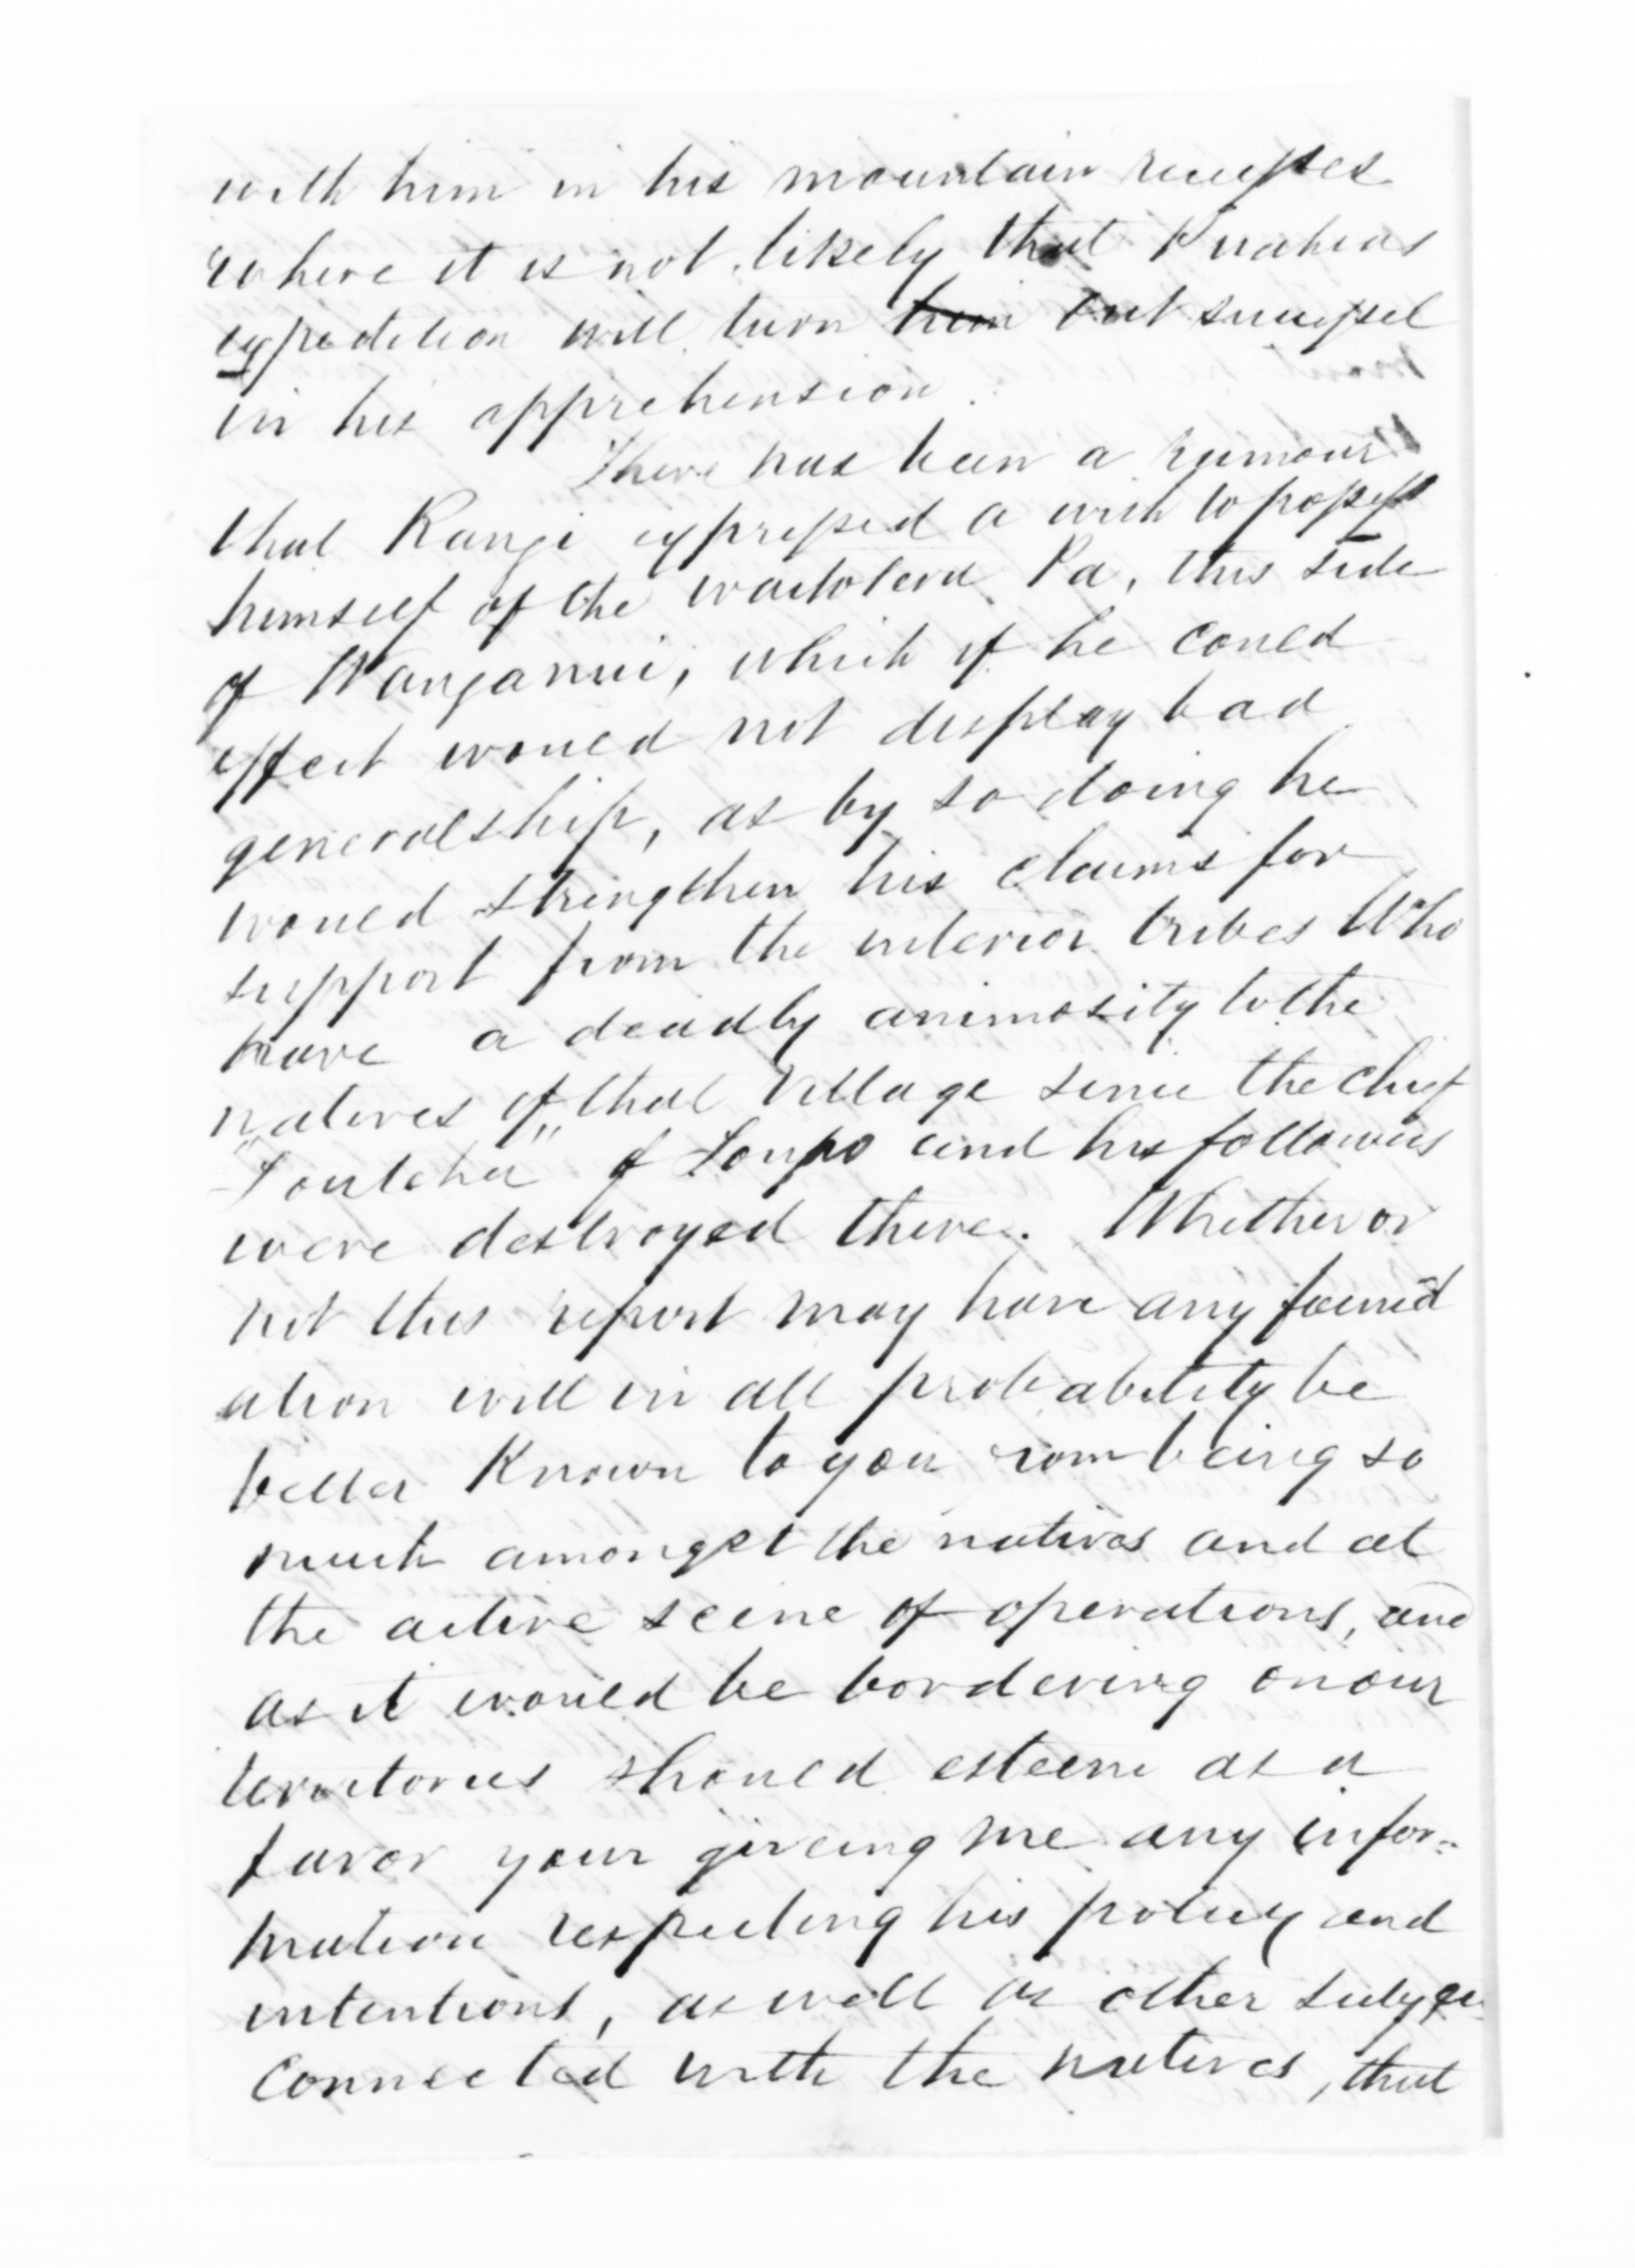 with him in his mountain recesses
where it is not likely that Puahas
expedition will turn him out successful
in his apprehension.
There has been a rumour
that Rangi expressed a wish to possess
himself of the Waitotara Pa, this side
of Wanganui, which if he could
effect would not display bad
generalship, as by so doing he
would strengthen his claims for
support from the interior tribes who
have a deadly animosity to the
natives of that village since the chief
"Touteha" of Toupo and his followers
were destroyed there. Whether or
not this report may have any found
ation will in all probability be
better known to you from being so
much amongst the natives and at
the active scene of operations, and
as it would be bordering on our
territories should esteem as a
favor your giveing me any infor-
mation respecting his policy and
intentions, as well as other subjec
connected with the natives, that